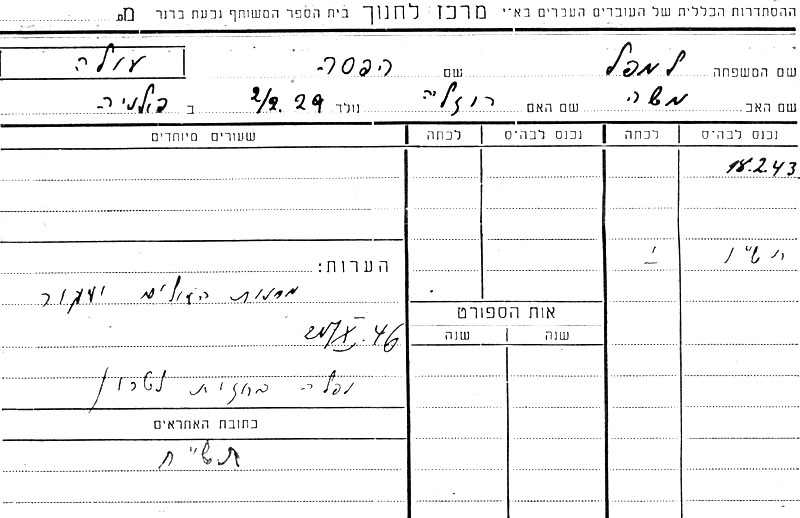 ההסתדרות הכללית של העובדים העברים בא״י מרכז לחנוך בית הספר המשותף גבעת ברנר מס.
שם המשפחה למפל שם הפסה עולה
שם האב משה שם האם רוזליה נולד 2/2. 29 ב פולניה
נכנס לבה״ס לכתה נכנס לבה״ס לכתה שעורים מיוחדים
18.2.43
תש״ו י
הערות:
מחנות העולים יעקור
אות הספורט
46
שנה שנה
נפלה בחזית לטרון
כתובת האחראים
תש״ח